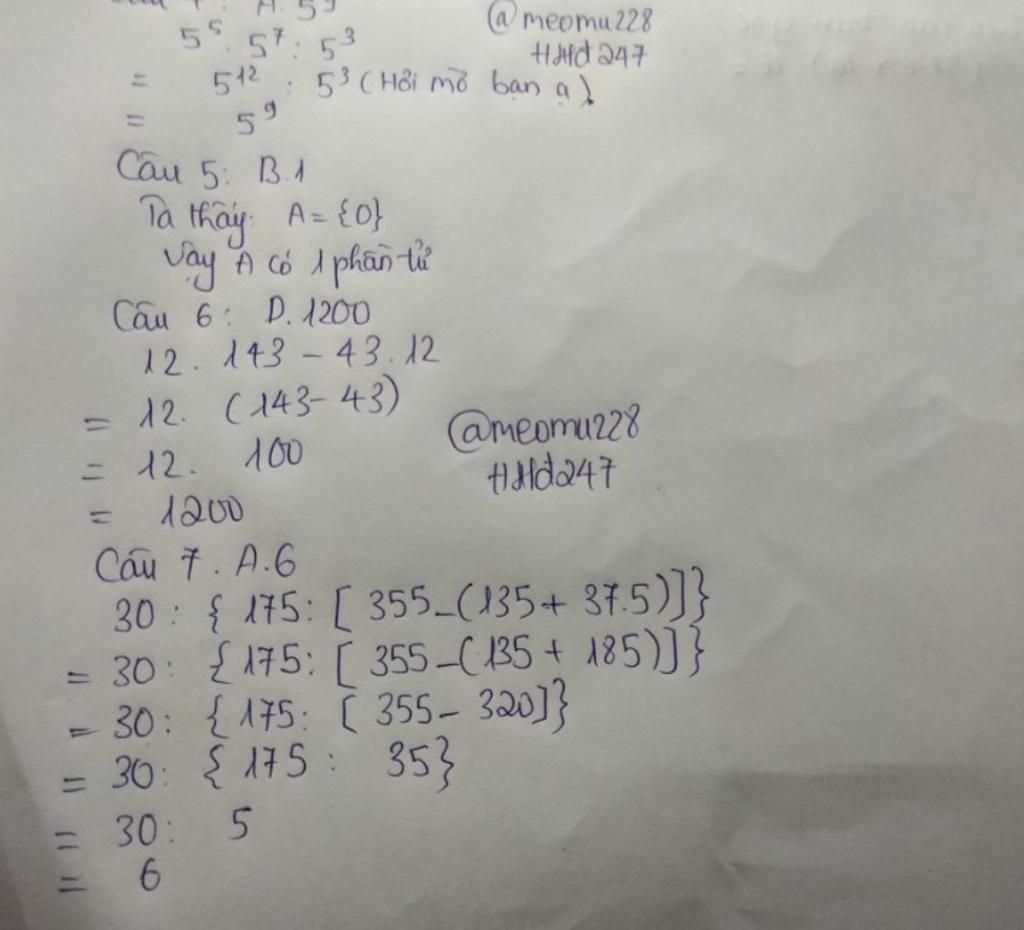 A. 5⁹
@meomu228
5⁵. 5⁷: 5³
HHđ247
= 5¹² : 5³ (Hơi mờ bạn ạ)
= 5⁹
Câu 5: B.1
Ta thấy: A = {0}
Vậy A có 1 phần tử
Câu 6: D. 1200
12. 143 - 43. 12
= 12. (143 - 43)
@meomu228
= 12. 100
HHđ247
= 1200
Câu 7. A.6
30: { 175: [ 355-(135 + 37.5)]}
= 30: {175: [ 355-(135 + 185)]}
= 30: {175: [ 355- 320]}
= 30: {175 : 35}
= 30: 5
= 6